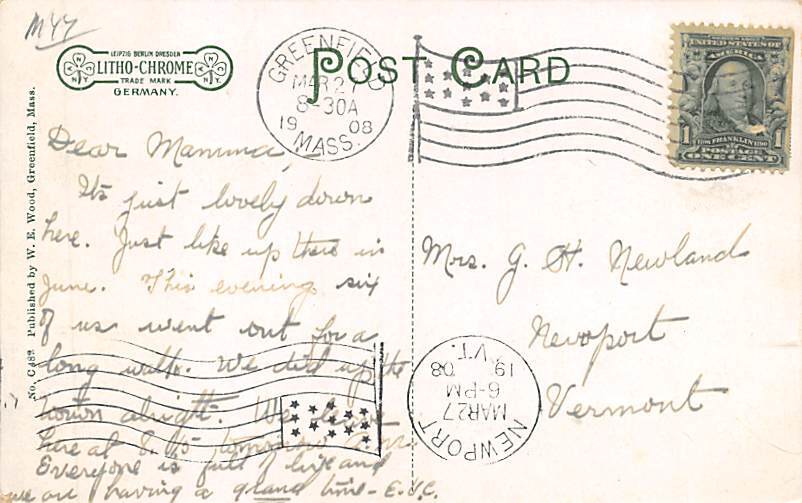 M47
LEIPZIG BERLIN DRESDEN
LITHO-CHROME
TRADE MARK
GERMANY.
POST CARD
GREENFIELD
MAR 27
8-30A
19 08
MASS.
UNITED STATES OF
AMERICA
1 1
POSTAGE
ONE CENT
No. C482 Published by W. E. Wood, Greenfield, Mass.
Dear Mamma,
It's just lovely down
here. Just like up there in
June. This evening six
of us went out for a
long walk. We did up the
town alright. We leave
here at 8.15 tomorrow A.M.
Everyone is full of life and
we are having a grand time - E.J.C.
Mrs. G. H. Newland
Newport
Vermont
NEWPORT
MAR 27
6-PM
19 08
VT.